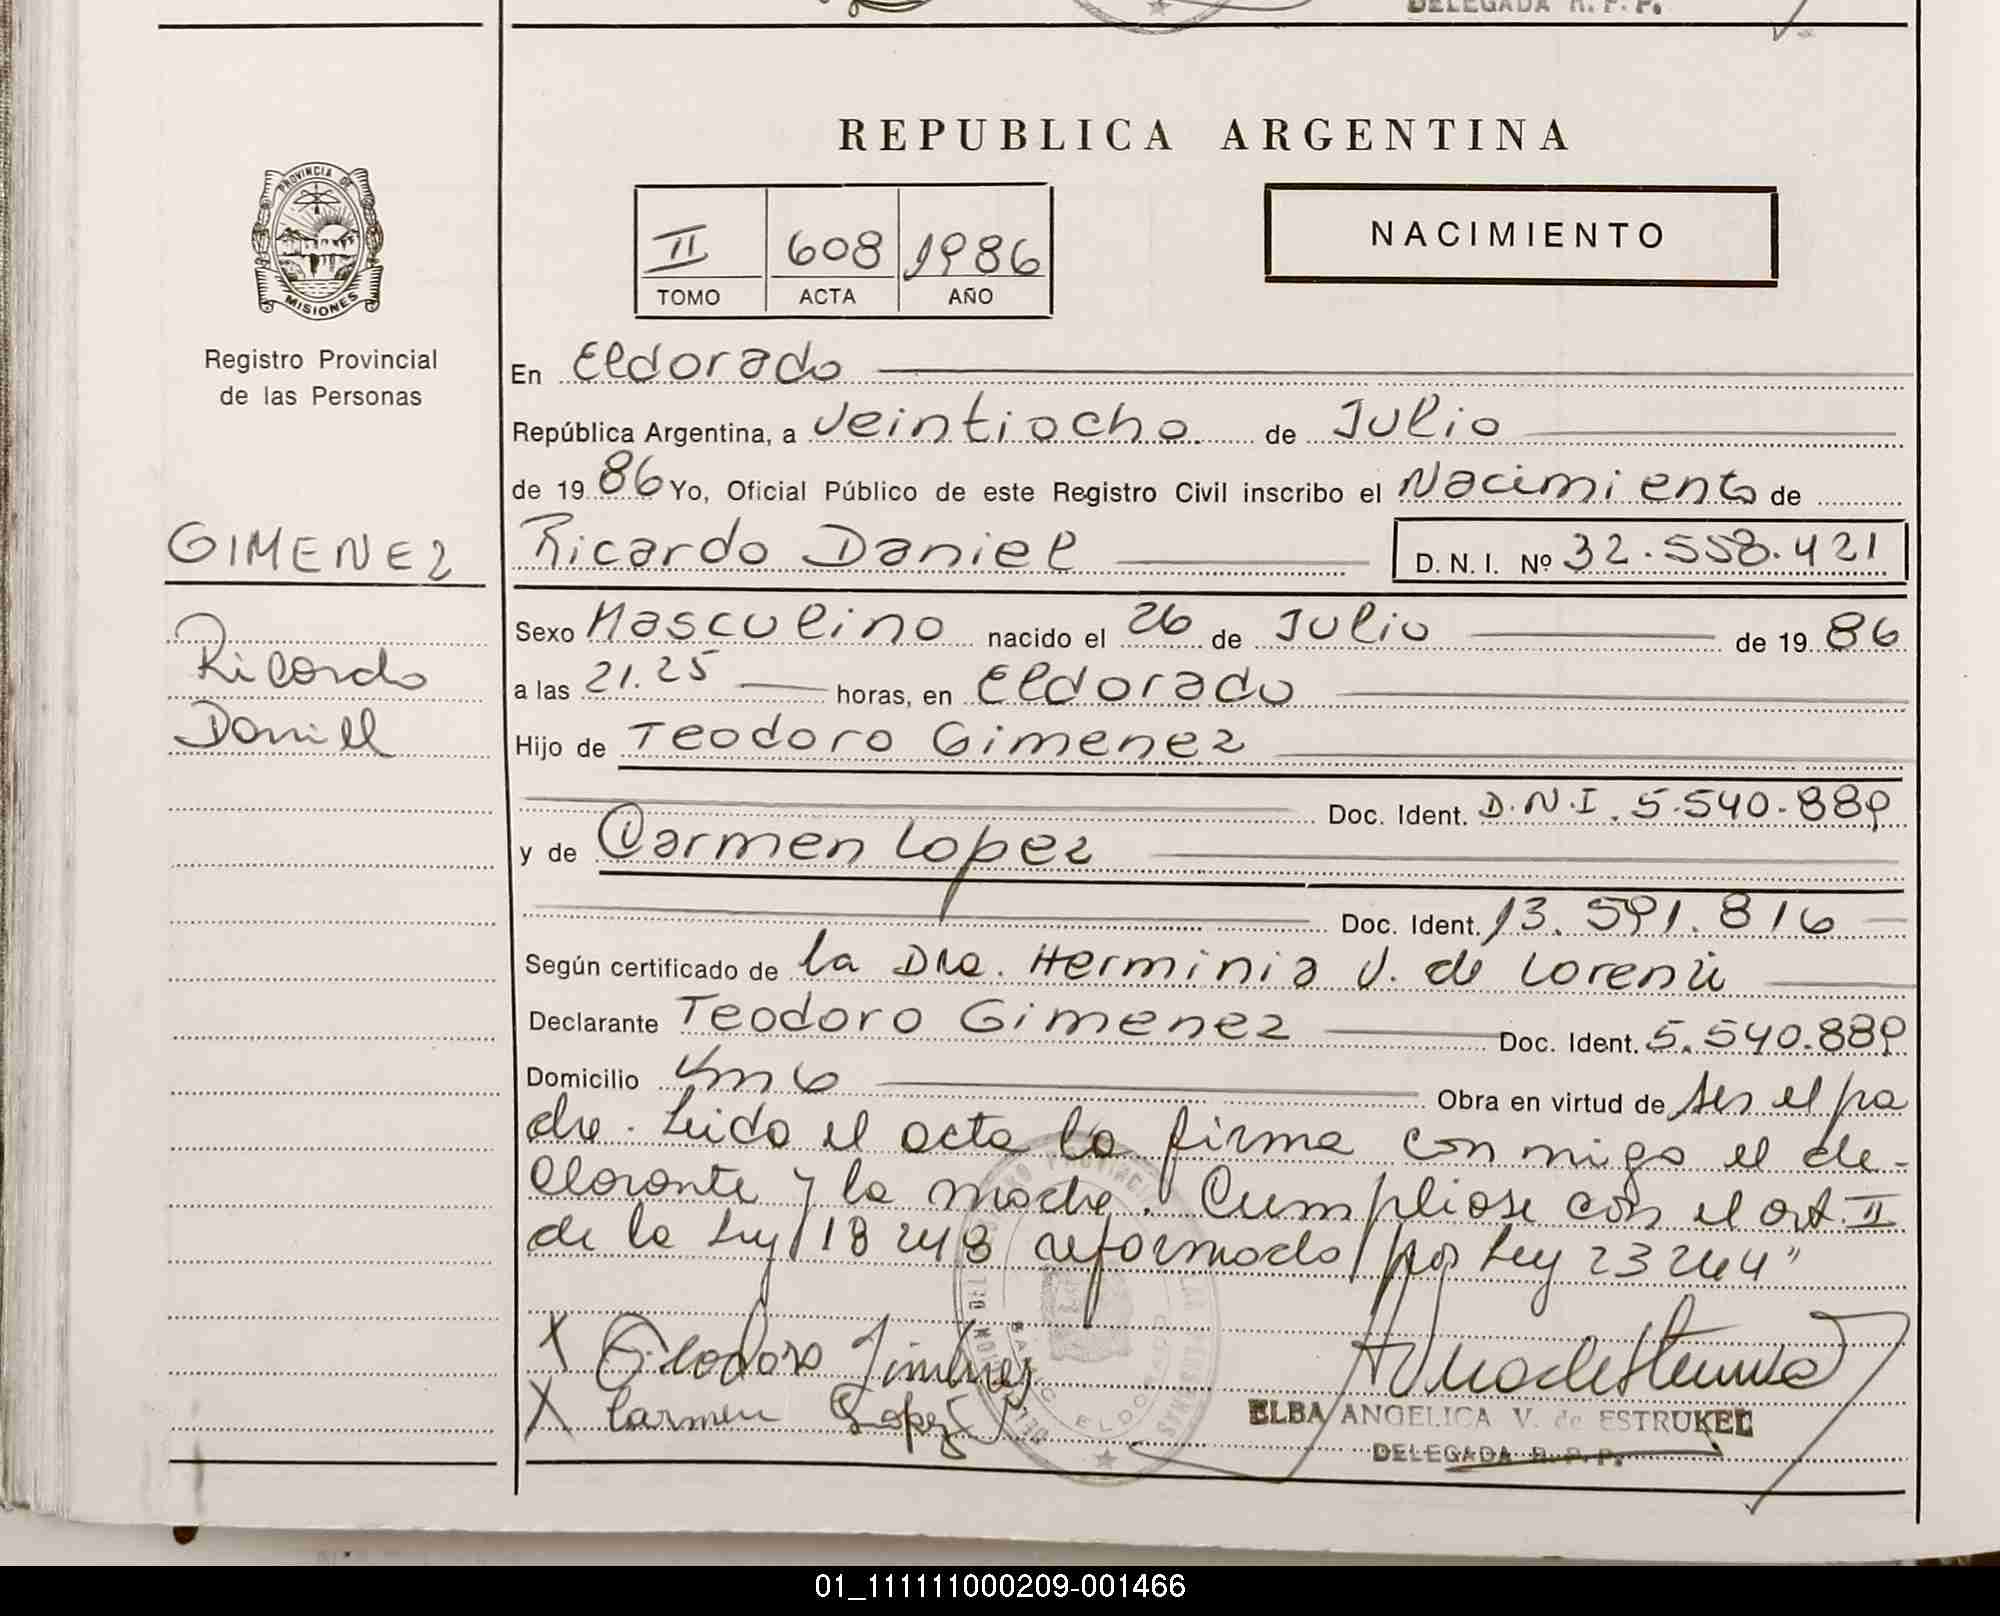 DELEGADA R. P. P.
REPUBLICA ARGENTINA
PROVINCIA DE
MISIONES
Registro Provincial
de las Personas
II 608 1986
TOMO ACTA AÑO
NACIMIENTO
En Eldorado
República Argentina, a veintiocho de Julio
de 1986 Yo, Oficial Público de este Registro Civil inscribo el Nacimiento de
GIMENEZ
Ricardo
Daniel
Ricardo Daniel D. N. I. Nº 32.558.421
Sexo Masculino nacido el 26 de Julio de 1986
a las 21.25 horas, en Eldorado
Hijo de Teodoro Gimenez
Doc. Ident. D.N.I. 5.540.889
y de Carmen Lopez
Doc. Ident. 13.591.816
Según certificado de la Dra. Herminia V. de Lorenzi
Declarante Teodoro Gimenez Doc. Ident. 5.540.889
Domicilio Km 6 Obra en virtud de ser el pa
dre. Leida el acta la firma conmigo el de-
clarante y la madre. Cumpliose con el art. II
de la Ley 18248 reformada por Ley 23264"
X Teodoro Jimenez
X Carmen Lopez
ELBA ANGELICA V. de ESTRUKEL
DELEGADA R. P. P.
01_111111000209-001466